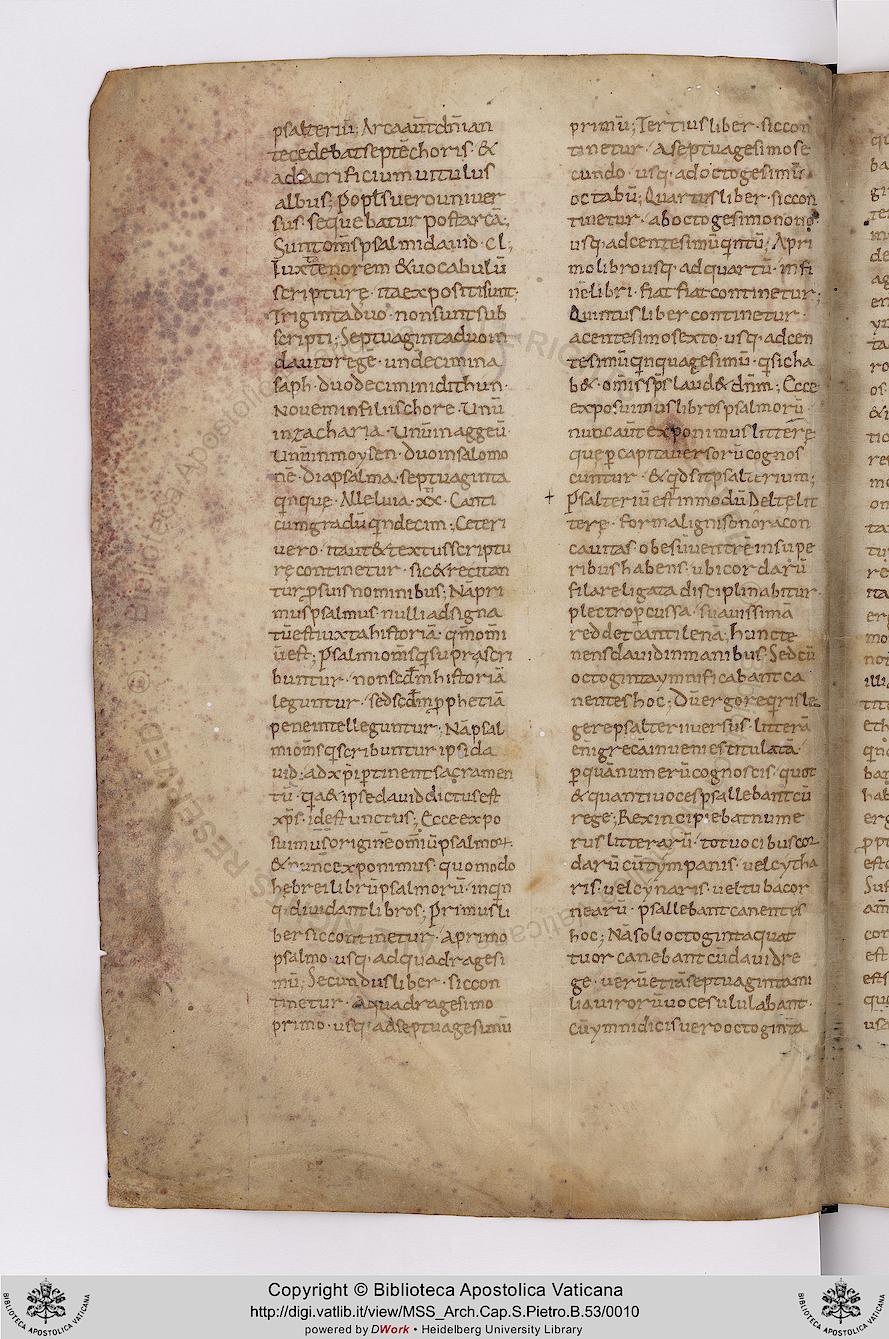 psalteriū; Arca aūt dn̄i an
tecedebat septē choris · &
ad sacrificium uitulus
albus; Popl's uero uniuer
sus · sequebatur post arcā;,
Sunt om̄s psalmi dauid · cl;
Iuxta tenorem & uocabulū
scripturę · ita expositi sunt;
Triginta duo · non sunt sub
scripti; Septuaginta duo in
dauid regē · undecim in a
saph · duodecim in idithun ·
Nouem in filiis chore · Unū
in zacharia · Unū in aggeū ·
Unū in moysen · duo in salomo
nē · diapsalma · septuaginta
qinque · Alleluia · xx · Canti
cum graduū qindecim; Ceteri
uero · ita ut & textus scriptu
rę continetur · sic & recitan
tur p suis nominibus; Nā pri
mus psalmus · nulli adsigna
tū est iuxta historiā · qm̄ om̄i
ū est; Psalmi om̄s q suprascri
buntur · non scdm̄ historiā
leguntur · sed scdm̄ pphetiā
pene intelleguntur; Nā psal
mi om̄s q scribuntur ipsi da
uid · ad xp̄i ptinent sacramen
tū · qa & ipse dauid dictus est
xp̄s · id est unctus; Ecce expo
suimus originē om̄iū psalmoꝝ ·
& nunc exponimus · quomodo
hebrei librū psalmorū · in qin
q diuidant libros; Primus li
ber sic continetur · A primo
psalmo · usq · ad quadragesi
mū; Secundus liber · sic con
tinetur · A quadragesimo
primo · usq · ad septuagesimū
primū; Tertius liber · sic con
tinetur · A septuagesimo se
cundo · usq · ad octogesimū
octabū; Quartus liber · sic con
tinetur · ab octogesimo nono ·
usq · ad centesimū qintū; A pri
mo libro usq · ad quartū · in fi
nē libri · fiat fiat continetur;
Quintus liber continetur ·
a centesimo sexto · usq · ad cen
tesimū qinquagesimū · q sic ha
b& · om̄is sp̄s laud& dn̄m; Ecce
exposuimus libros psalmorū ·
nunc aūt exponimus litterę
que p capita uersorū cognos
cuntur · & qid sit psalterium;
+ Psalteriū est in modū Delte lit
tere · forma ligni sonora con
cauitas · obesū uentrē in supe
ribus habens · ubi cordarū
fila religata disciplinabitur ·
plectro pcussa · suauissimā
reddet cantilena; Hunc te
nens dauid in manibus · Sed cū
octoginta ymnificabant ca
nentes hoc; Dū ergo reqris le
gere psalterii uersus · litterā
en̄i grecā inueni es titulatā ·
p quā numerū cognoscis · quot
& quanti uoces psallebant cū
rege; Rex incipiebat nume
rus litterarū · tot uocibus cor
darū cū tympanis · uel cytha
ris · uel cynaris · uel tuba cor
nearū · psallebant canentes
hoc; Nā soli octoginta quat
tuor canebant cū dauid re
ge · uerū etiā septuaginta mi
lia uirorū uoces ululabant ·
cū ymnidicis uero octoginta
Copyright © Biblioteca Apostolica Vaticana
http://digi.vatlib.it/view/MSS_Arch.Cap.S.Pietro.B.53/0010
powered by DWork • Heidelberg University Library